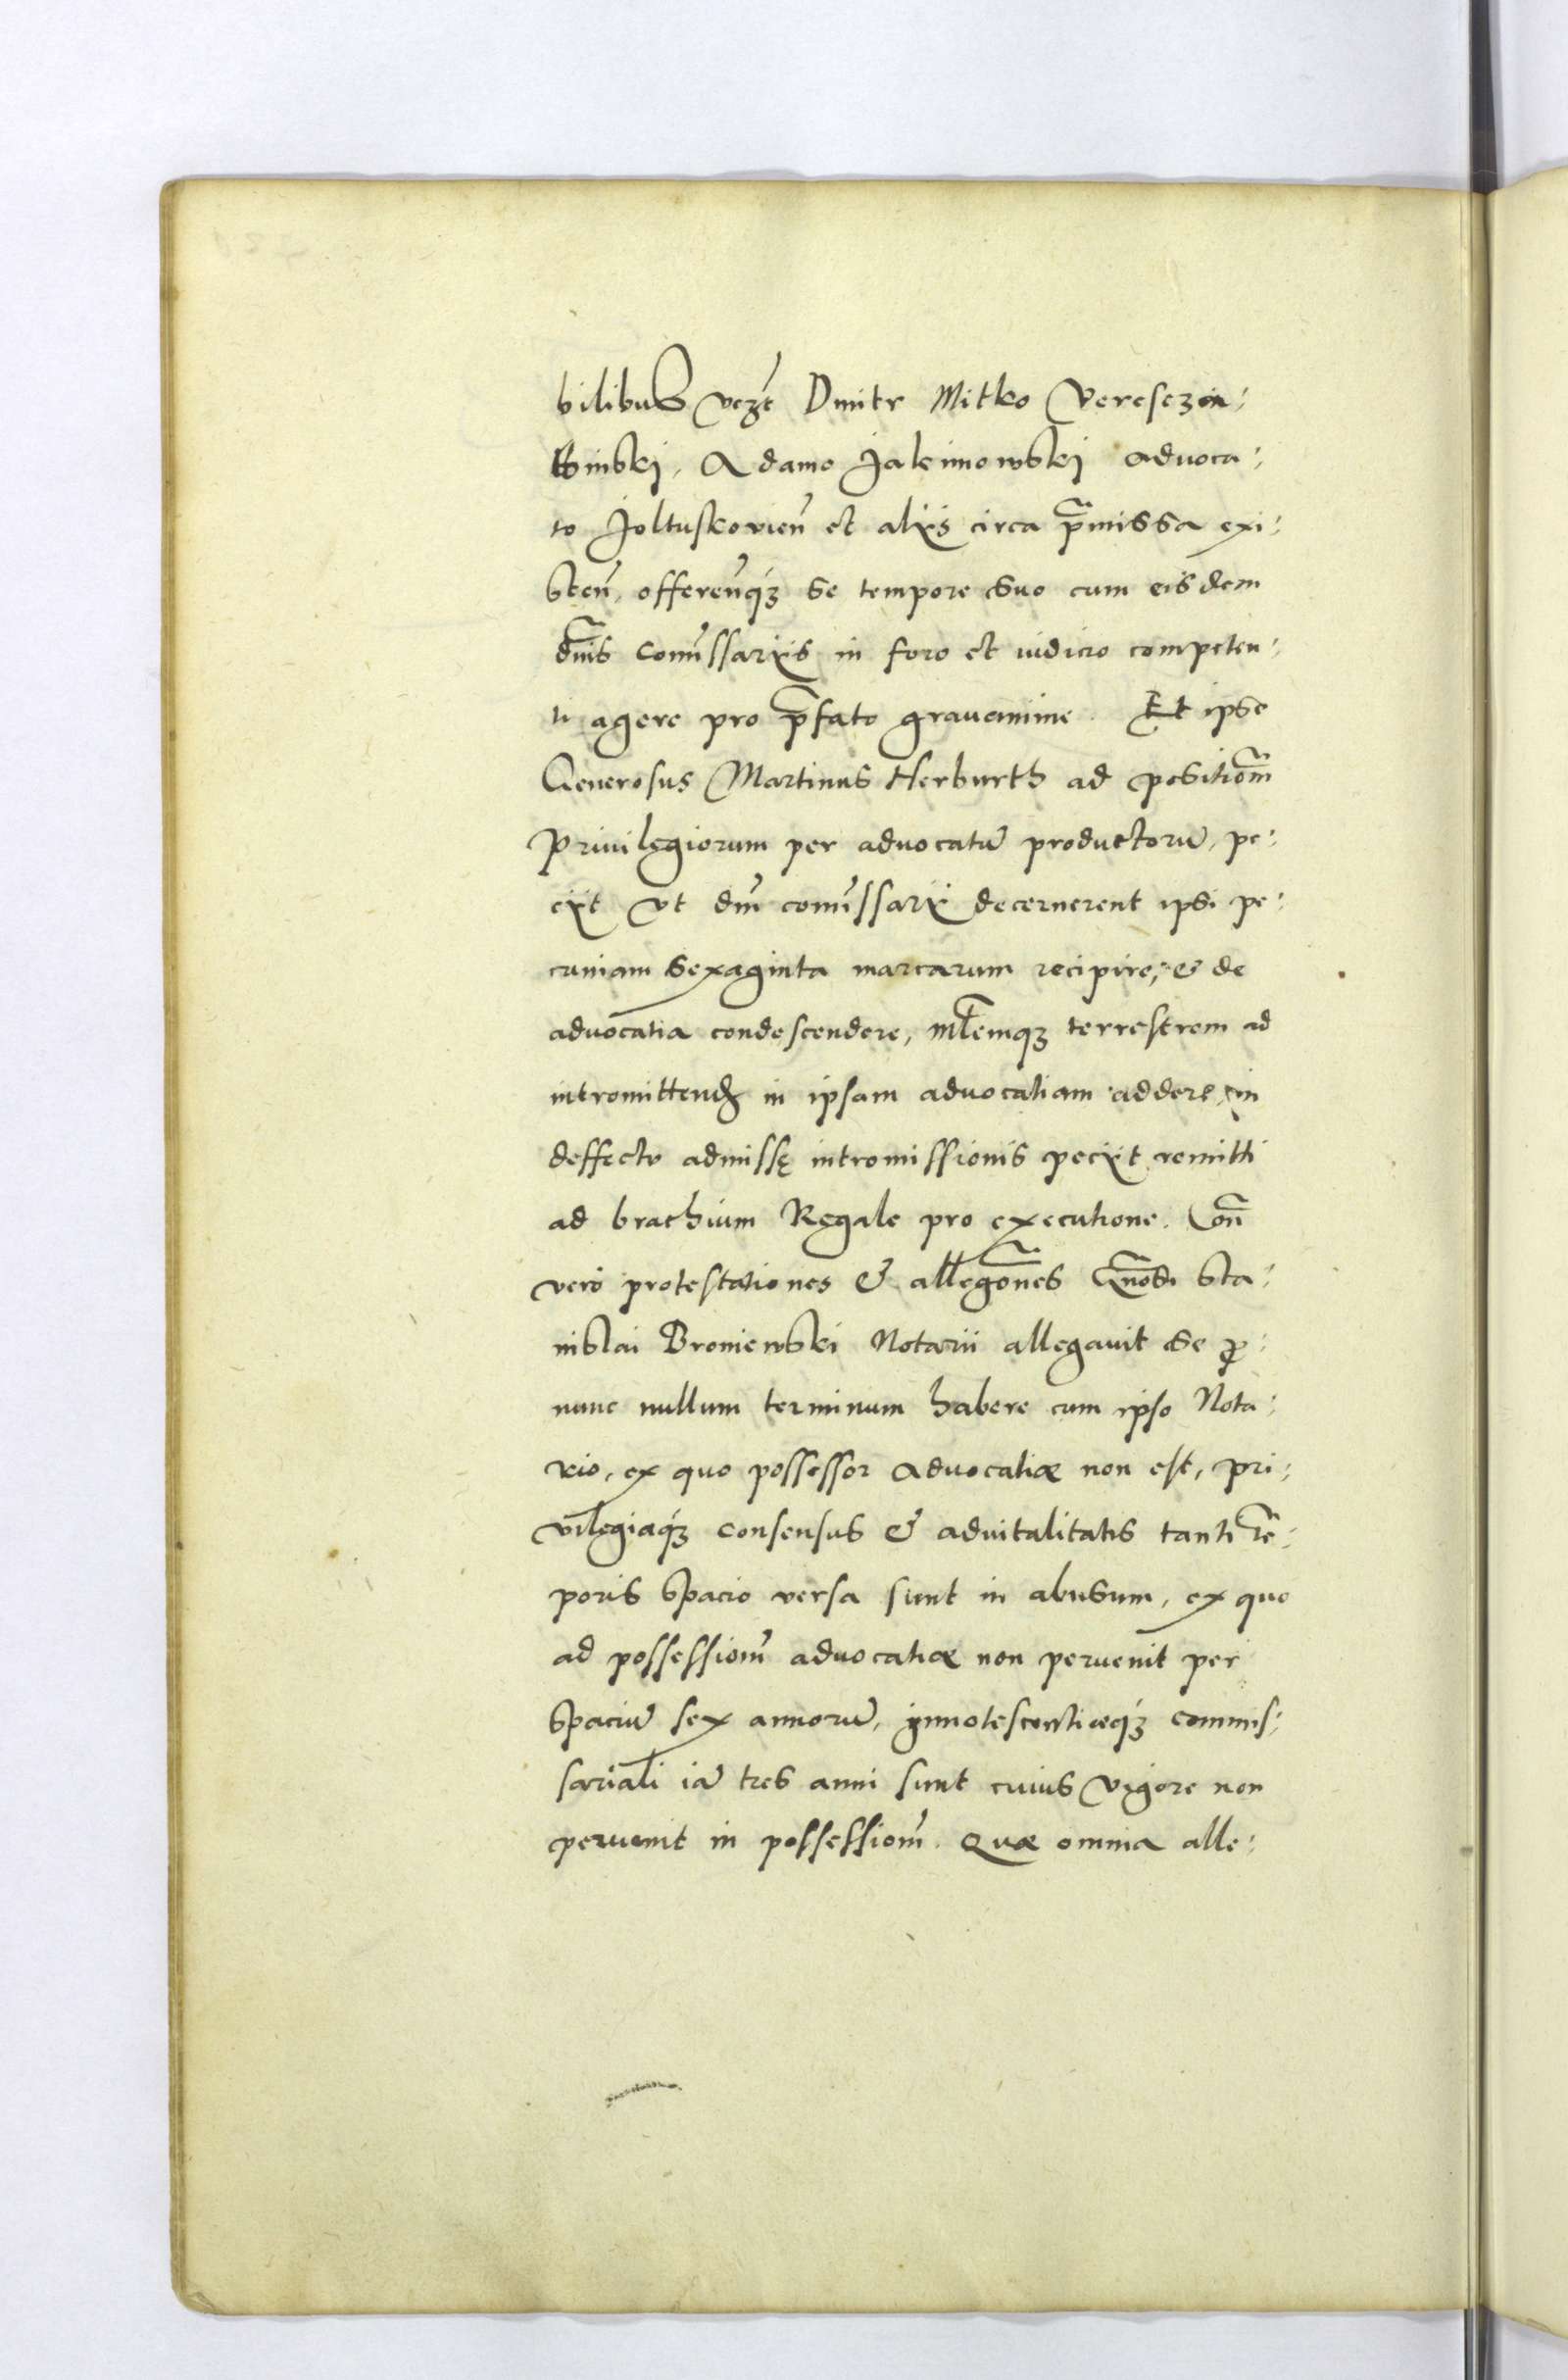 bilibus vczt Dmitr Mitko Veresczin:
ssinski, Adamo Jakimowski advoca:
to Joltuskovien̄ et alÿs circa p̄missa exi:
sten̄, offeren̄q́ꝫ se tempore suo cum eisdem
dn̄is Comm̄ssarÿs in foro et iudicio competen:
ti agere pro p̄fato gravamine. Et ipse
Generosus Martinus Herburth ad positiōm
Privilegiorum per advocatū productorū, pe:
cÿt vt dn̄i comm̄ssarÿ decernerent ipsi pe:
cuniam sexaginta marcarum recipire, & de
advocatia condescendere, ml̄emqꝫ terrestrem ad
intromittend in ipsam advocatiam addere, in
deffectu admissę intromissionis pecÿt remitti
ad brachium Regale pro executione. Con̄
vero protestationes & allegōnes Gn̄osi Sta:
nislai Broniewski Notarii allegavit se ꝓ:
nunc nullum terminum habere cum ipso Nota:
rio, ex quo possessor advocatiæ non est, pri:
vilegiaq́ꝫ consensus & advitalitatis tanti tē:
poris spacio versa sunt in abusum, ex quo
ad possessiōm advocatiæ non pervenit per
spaciū sex annorū, innotescentiæq́ꝫ commis:
sariali iā tres anni sunt cuius vigore non
pervenit in possessiōm. Quæ omnia alle: